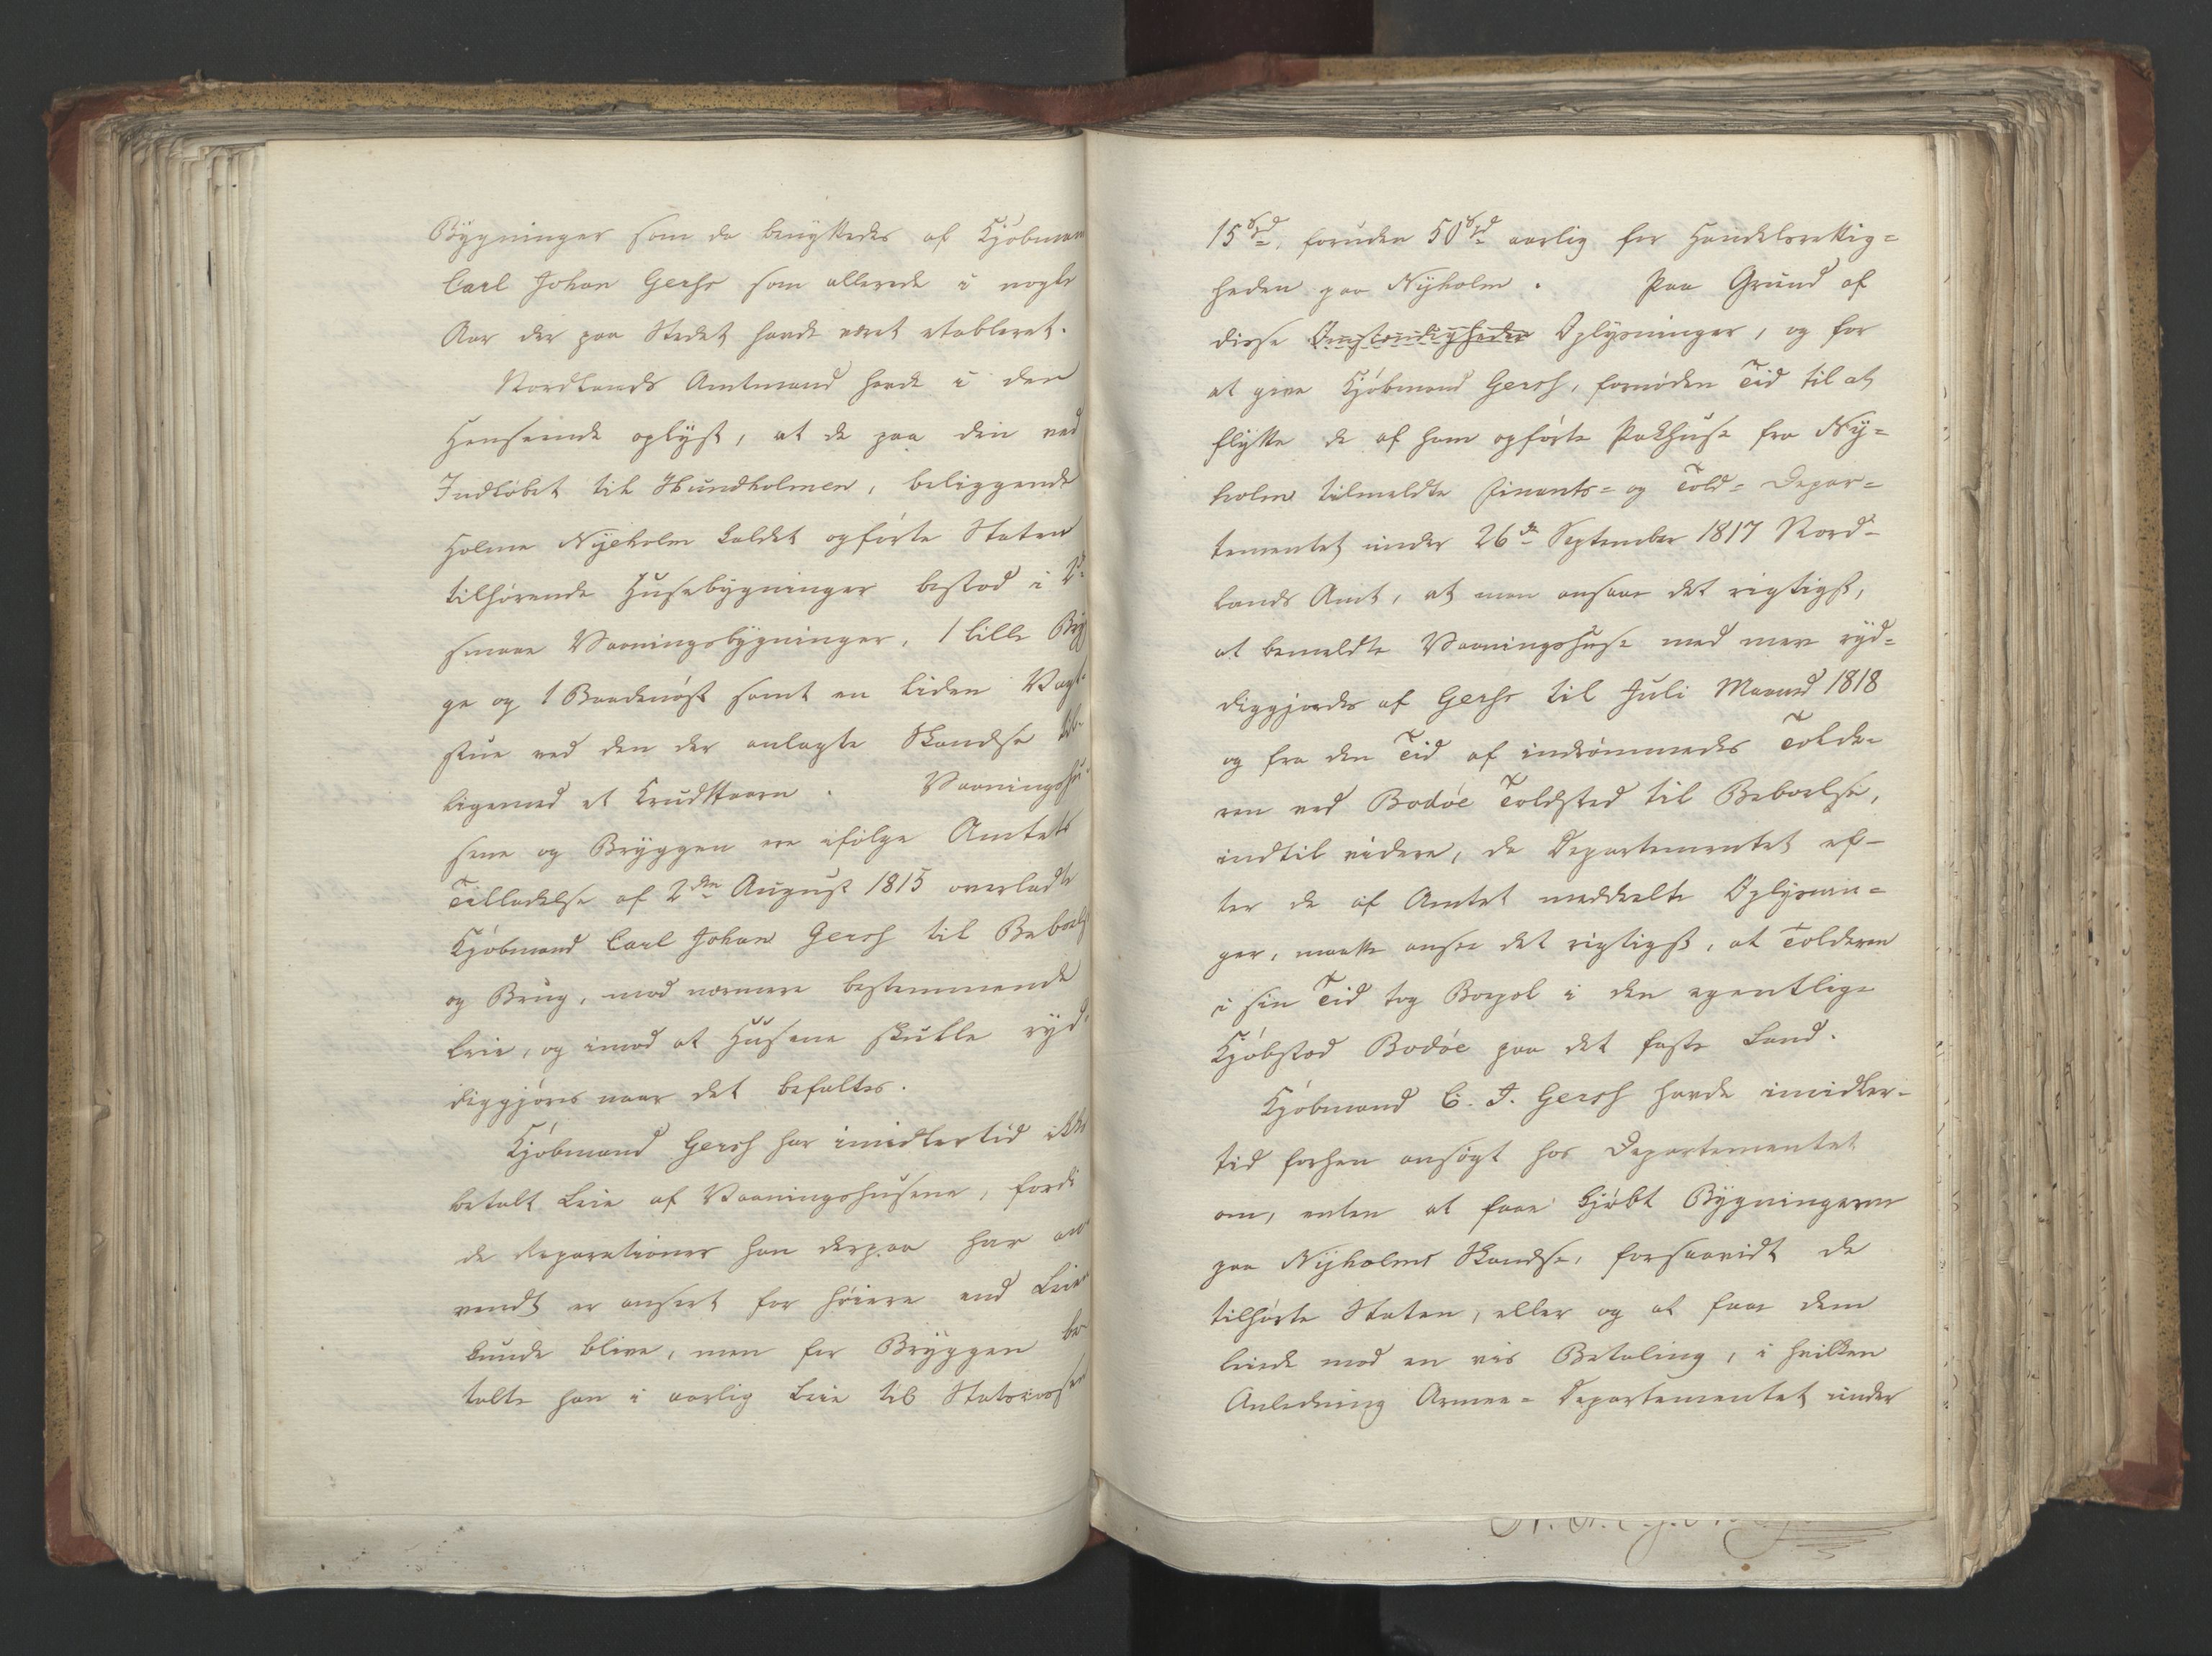 Bÿgninger som da benÿttedes af Kjøbman
Carl Johan Gerss som allerede i nogle
Aar der paa Stedet havde været etableret.
Nordlands Amtmand havde i den
Henseende oplÿst, at de paa den ved
Indløbet til Hundholmen, beliggende
Holme Nÿeholm kaldet opførte Staten
tilhørende Husebÿgninger bestod i 2de
smaae Vaaningsbÿgninger, 1 lille Brÿg
ge og 1 Baadenøst samt en liden Vagt-
stue ved den der anlagte Skandse
ligemed et Krudttaarn. Vaaningshu-
sene og Brÿggen ere ifølge Amtets
Tilladelse af 2den August 1815 overladte
Kjøbmand Carl Johan Gersh til Beboelse
og Brug, mod nærmere bestemmende
Leie, og imod at Husene skulle rÿd-
diggjøres naar det befaltes.
Kjøbmand Gersh har imidlertid ikke
betalt Leie af Vaaningshusene, fordi
de Reparationer han derpaa har an-
vendt er anseet for høiere end Leien
kunde blive, men for Brÿggen be-
talte han i aarlig Leie til Statscassen
15 Spd, foruden 50 Spd aarlig for Handelsrettig=
heden paa Nÿholm. Paa Grund af
disse Omstændigheder Oplÿsninger, og for
at give Kjøbmand Gersh, fornøden Tid til at
flÿtte de af ham opførte Pakhuse fra Nÿ=
holm tilmeldte Finants= og Told= Depar=
tementet under 26de September 1817 Nord=
lands Amt, at man ansaae det rigtigst,
at bemeldte Vaaningshuse med mere rÿd=
diggjordes af Gerss til Juli Maaned 1818
og fra den Tid af indrømmedes Tolde-
ren ved Bodøe Toldsted til Beboelse,
indtil videre, da Departementet ef-
ter de af Amtet meddeelte Oplÿsnin=
ger, maatte ansee det rigtigst, at Tolderen
i sin Tid tog Boepæl i den egentlige
Kjøbstad Bodøe paa det faste Land.
Kjøbmand C. J. Gersh havde imidler-
tid forhen ansøgt hos Departementet
om, enten at faae kjøbt Bÿgningerne
paa Nÿholms Skandse, forsaavidt de
tilhørte Staten, eller og at faae dem
leiede mod en vis Betaling, i hvilken
Anledning Armee= Departementet under